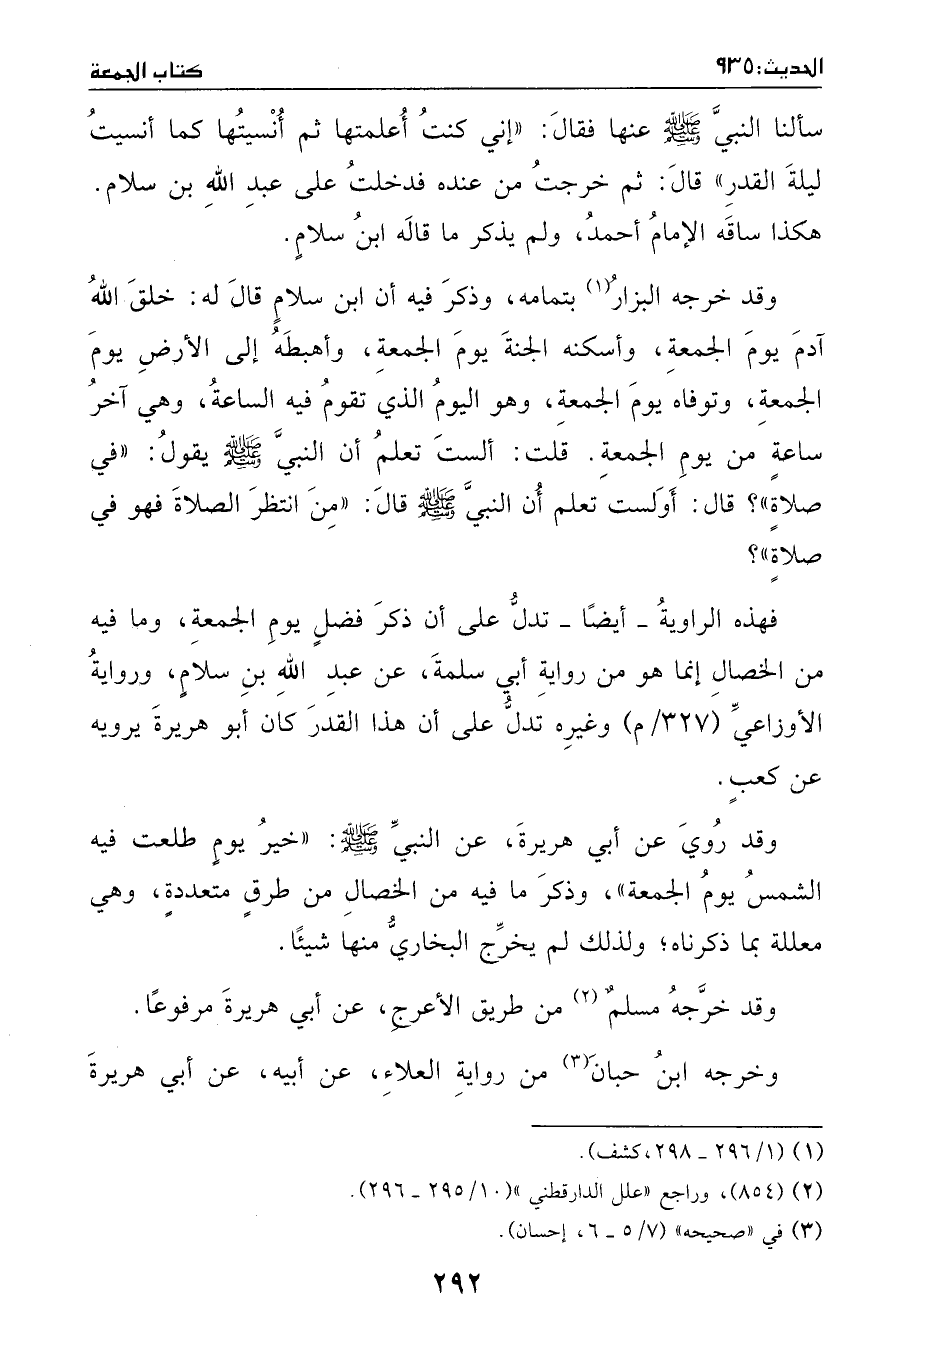 الحديث: ٩٣٥ كتاب الجمعة
سألنا النبيَّ ﷺ عنها فقالَ: «إني كنتُ أُعلمتها ثم أُنْسيتُها كما أنسيتُ
ليلةَ القدرِ» قالَ: ثم خرجتُ من عنده فدخلتُ على عبدِ اللهِ بن سلام.
هكذا ساقَه الإمامُ أحمدُ، ولم يذكر ما قالَه ابنُ سلامٍ.
وقد خرجه البزارُ(١) بتمامه، وذكرَ فيه أن ابن سلامٍ قالَ له: خلقَ اللهُ
آدمَ يومَ الجمعةِ، وأسكنه الجنةَ يومَ الجمعةِ، وأهبطَهُ إلى الأرضِ يومَ
الجمعةِ، وتوفاه يومَ الجمعةِ، وهو اليومُ الذي تقومُ فيه الساعةُ، وهي آخرُ
ساعةٍ من يومِ الجمعةِ. قلت: ألستَ تعلمُ أن النبيَّ ﷺ يقولُ: «في
صلاةٍ»؟ قال: أَوَلست تعلم أُن النبيَّ ﷺ قالَ: «منَ انتظرَ الصلاةَ فهو في
صلاةٍ»؟
فهذه الراويةُ ـ أيضًا ـ تدلُّ على أن ذكرَ فضلِ يومِ الجمعةِ، وما فيه
من الخصالِ إنما هو من روايةِ أبي سلمةَ، عن عبدِ اللهِ بنِ سلامٍ، وروايةُ
الأوزاعيِّ (٣٢٧/ م) وغيرِه تدلُّ على أن هذا القدرَ كان أبو هريرةَ يرويه
عن كعبٍ.
وقد رُويَ عن أبي هريرةَ، عن النبيِّ ﷺ: «خيرُ يومٍ طلعت فيه
الشمسُ يومُ الجمعة»، وذكرَ ما فيه من الخصالِ من طرقٍ متعددةٍ، وهي
معللة بما ذكرناه؛ ولذلك لم يخرِّج البخاريُّ منها شيئًا.
وقد خرَّجهُ مسلمٌ(٢) من طريق الأعرجِ، عن أبي هريرةَ مرفوعًا.
وخرجه ابنُ حبانَ(٣) من روايةِ العلاءِ، عن أبيه، عن أبي هريرةَ
(١) (١/ ٢٩٦ ـ ٢٩٨، كشف).
(٢) (٨٥٤)، وراجع «علل الدارقطني »(١٠/ ٢٩٥ ـ ٢٩٦).
(٣) في «صحيحه» (٧/ ٥ ـ ٦، إحسان).
٢٩٢